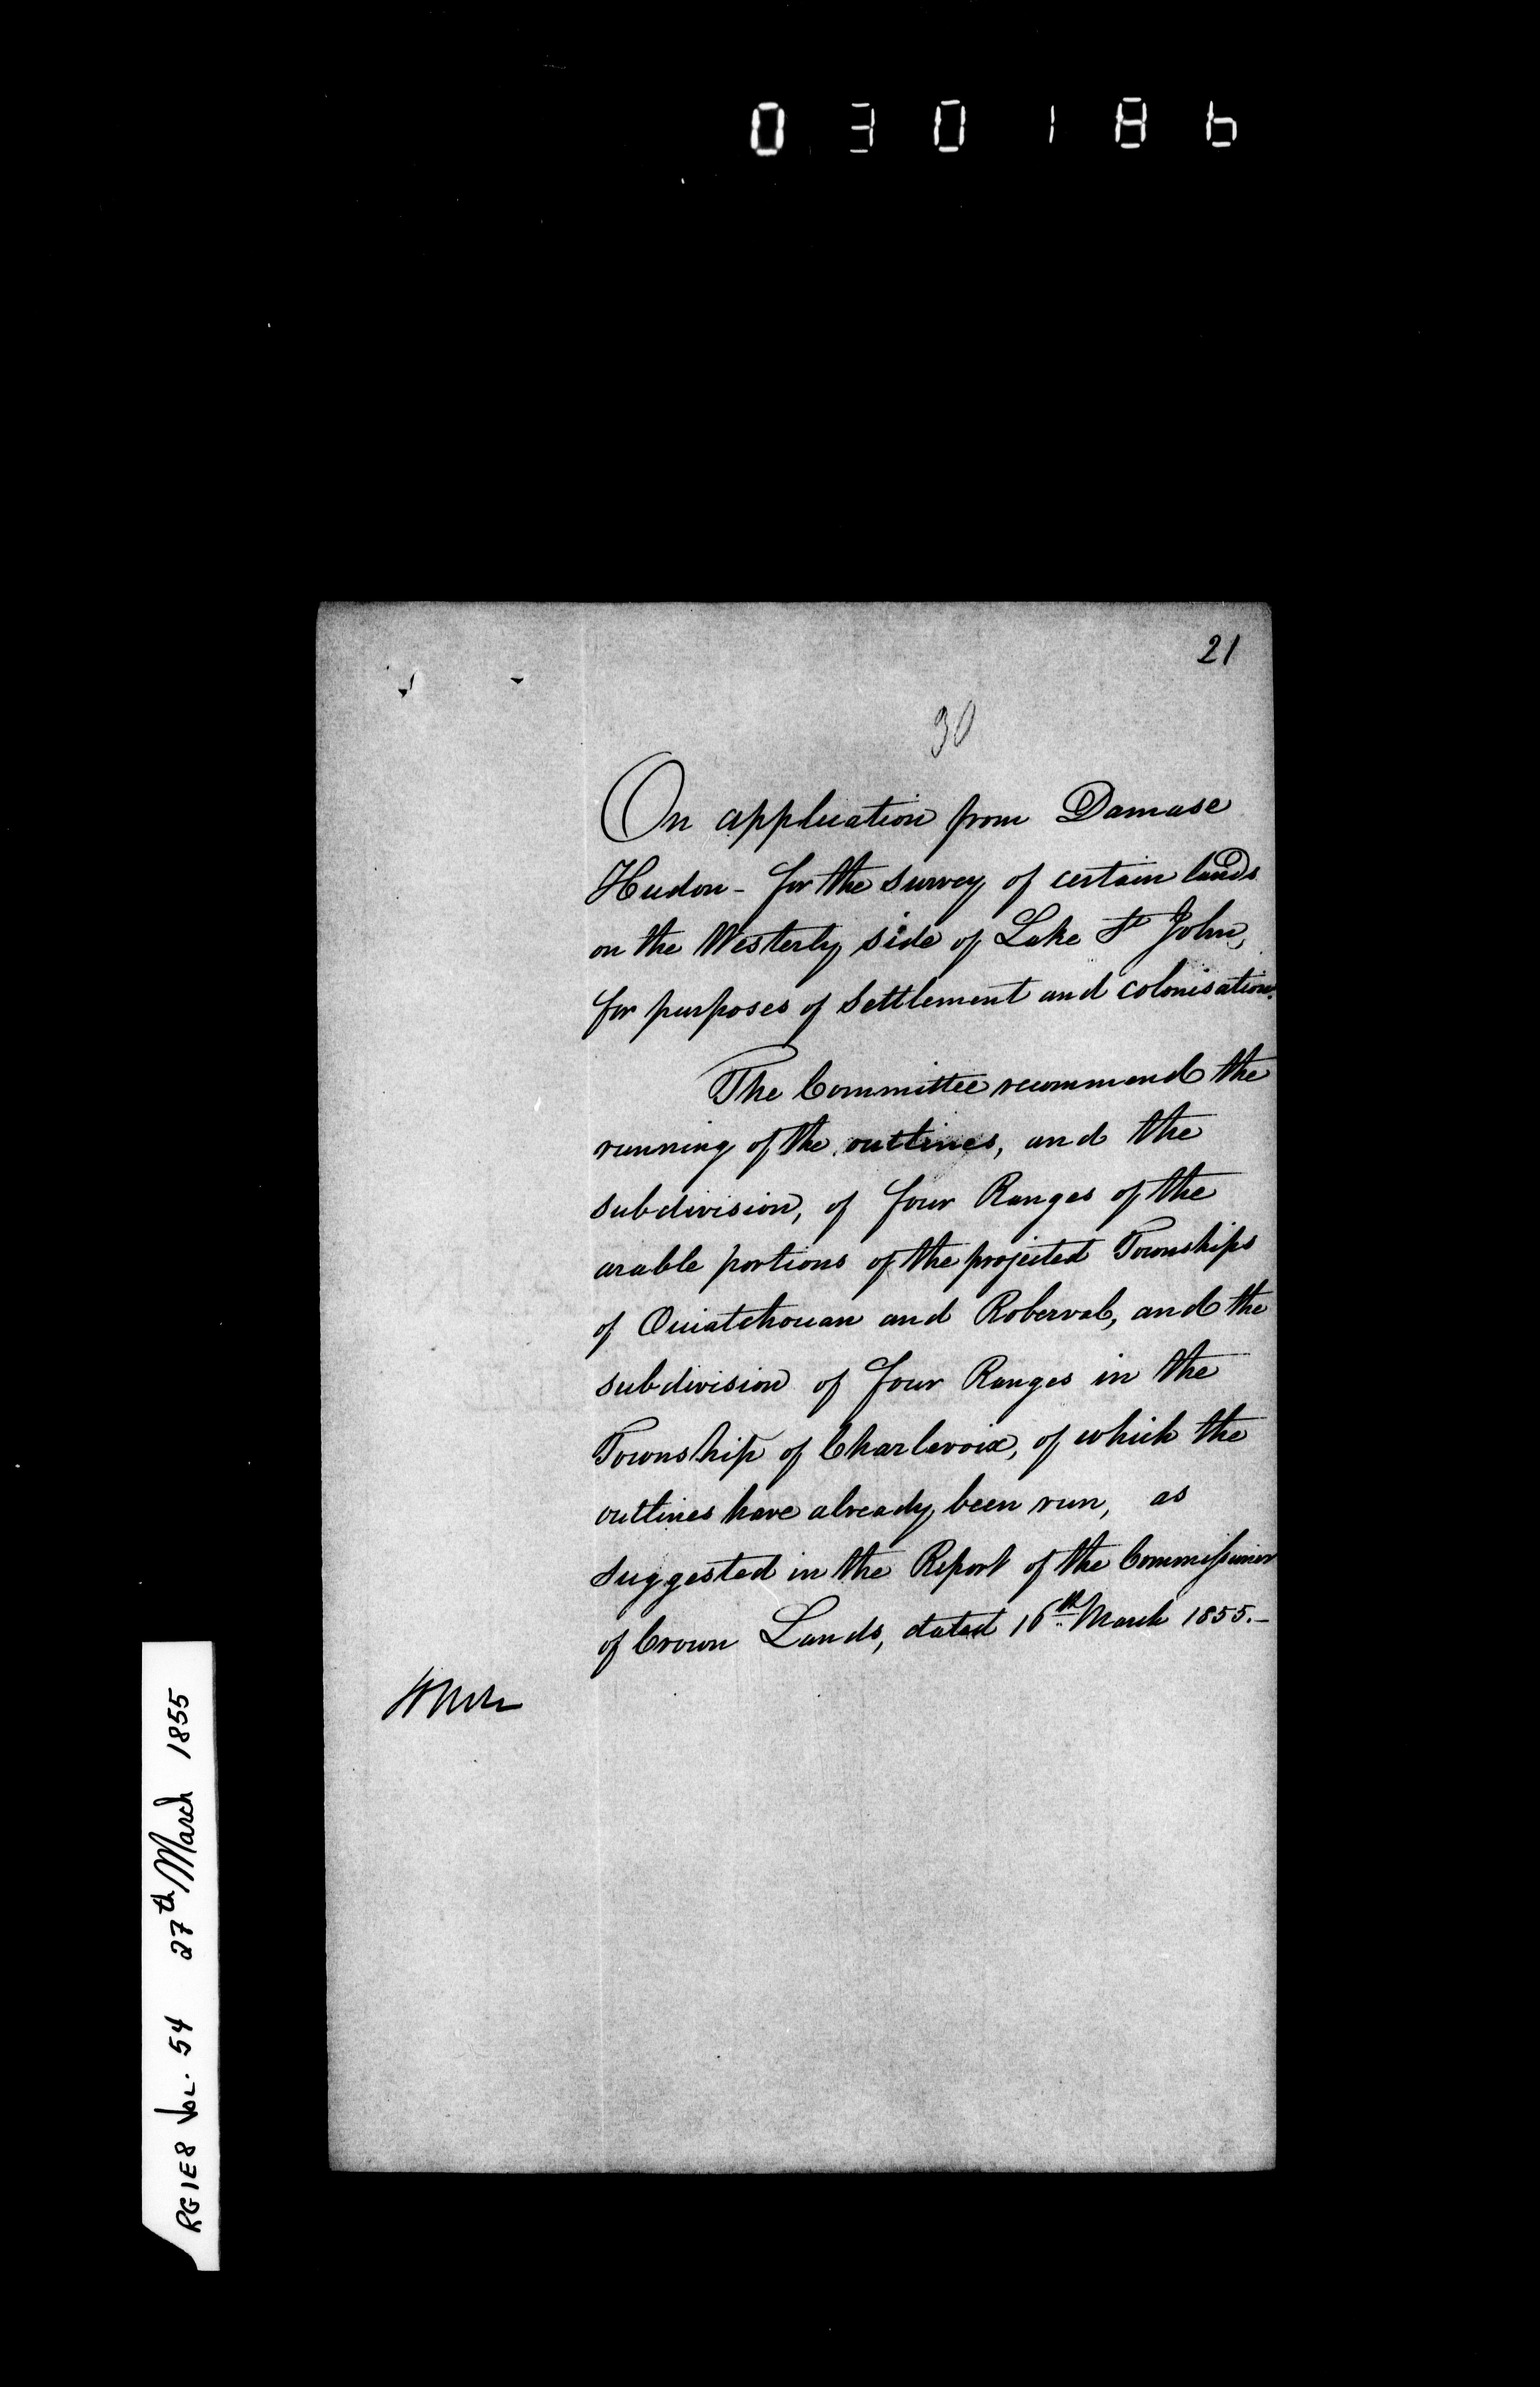 030186
21
30
On application from Damase
Hudon - for the survey of certain lands
on the Westerly side of Lake St John,
for purposes of settlement and colonisation.
The Committee recommend the
running of the outlines, and the
subdivision, of four Ranges of the
arable portions of the projected Townships
of Ouiatchouan and Roberval, and the
subdivision of four Ranges in the
Township of Charlevoix, of which the
outlines have already been run, as
suggested in the Report of the Commissioner
of Crown Lands, dated 16th March 1855.-
RG1E8 VOL. 54 27th March 1855